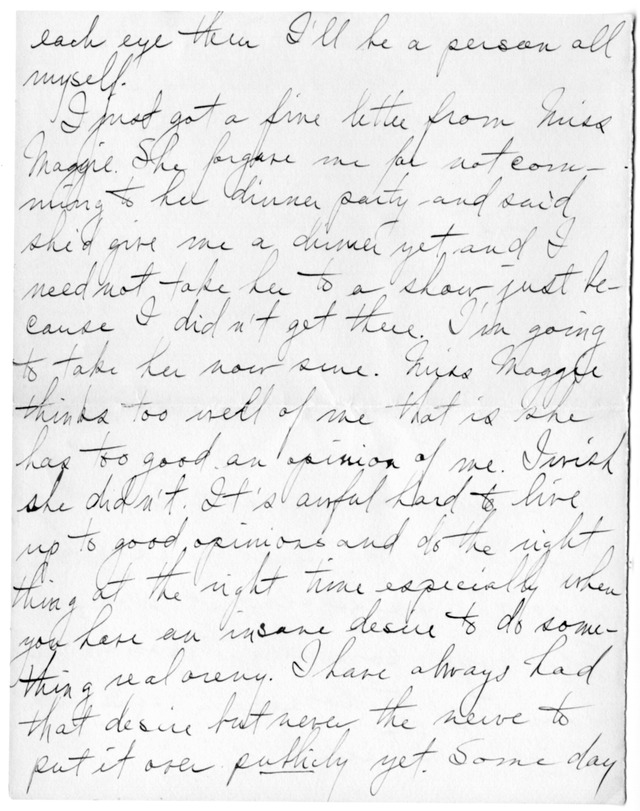 each eye then I'll be a person all
myself.
I just got a fine letter from Miss
Maggie. She forgave me for not com-
ming to her dinner party and said
she'd give me a dinner yet and I
need not take her to a show just be-
cause I didn't get there. I'm going
to take her now sure. Miss Maggie
thinks too well of me that is she
has too good an opinion of me. I wish
she didn't. It's awful hard to live
up to good opinions and do the right
thing at the right time especially when
you have an insane desire to do some-
thing real I have always had
that desire but never the nerve to
put it over publicly yet. Some day